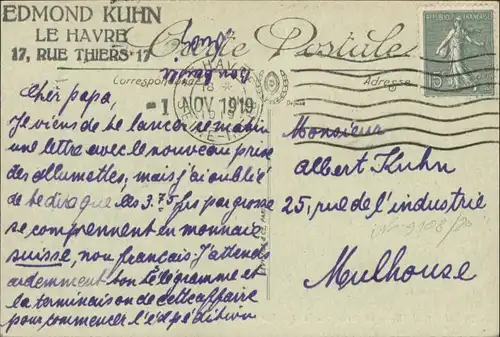 EDMOND KUHN
LE HAVRE
17, RUE THIERS 17
Carte Postale
Correspondance
Adresse
RÉPUBLIQUE FRANÇAISE
15
LE HAVRE
18
-1 NOV 1919
SEINE-INF
bon baiser
Cher papa,
Je viens de te lancer ce matin
une lettre avec le nouveau prix
des allumettes, mais j'ai oublié
de te dire que les 3.75 frs par grosse
se comprennent en monnaie
suisse, non français. J'attends
ardemment ton télégramme et
la terminaison de cette affaire
pour commencer l'expédition
Monsieur
Albert Kuhn
25, rue de l'industrie
Mulhouse